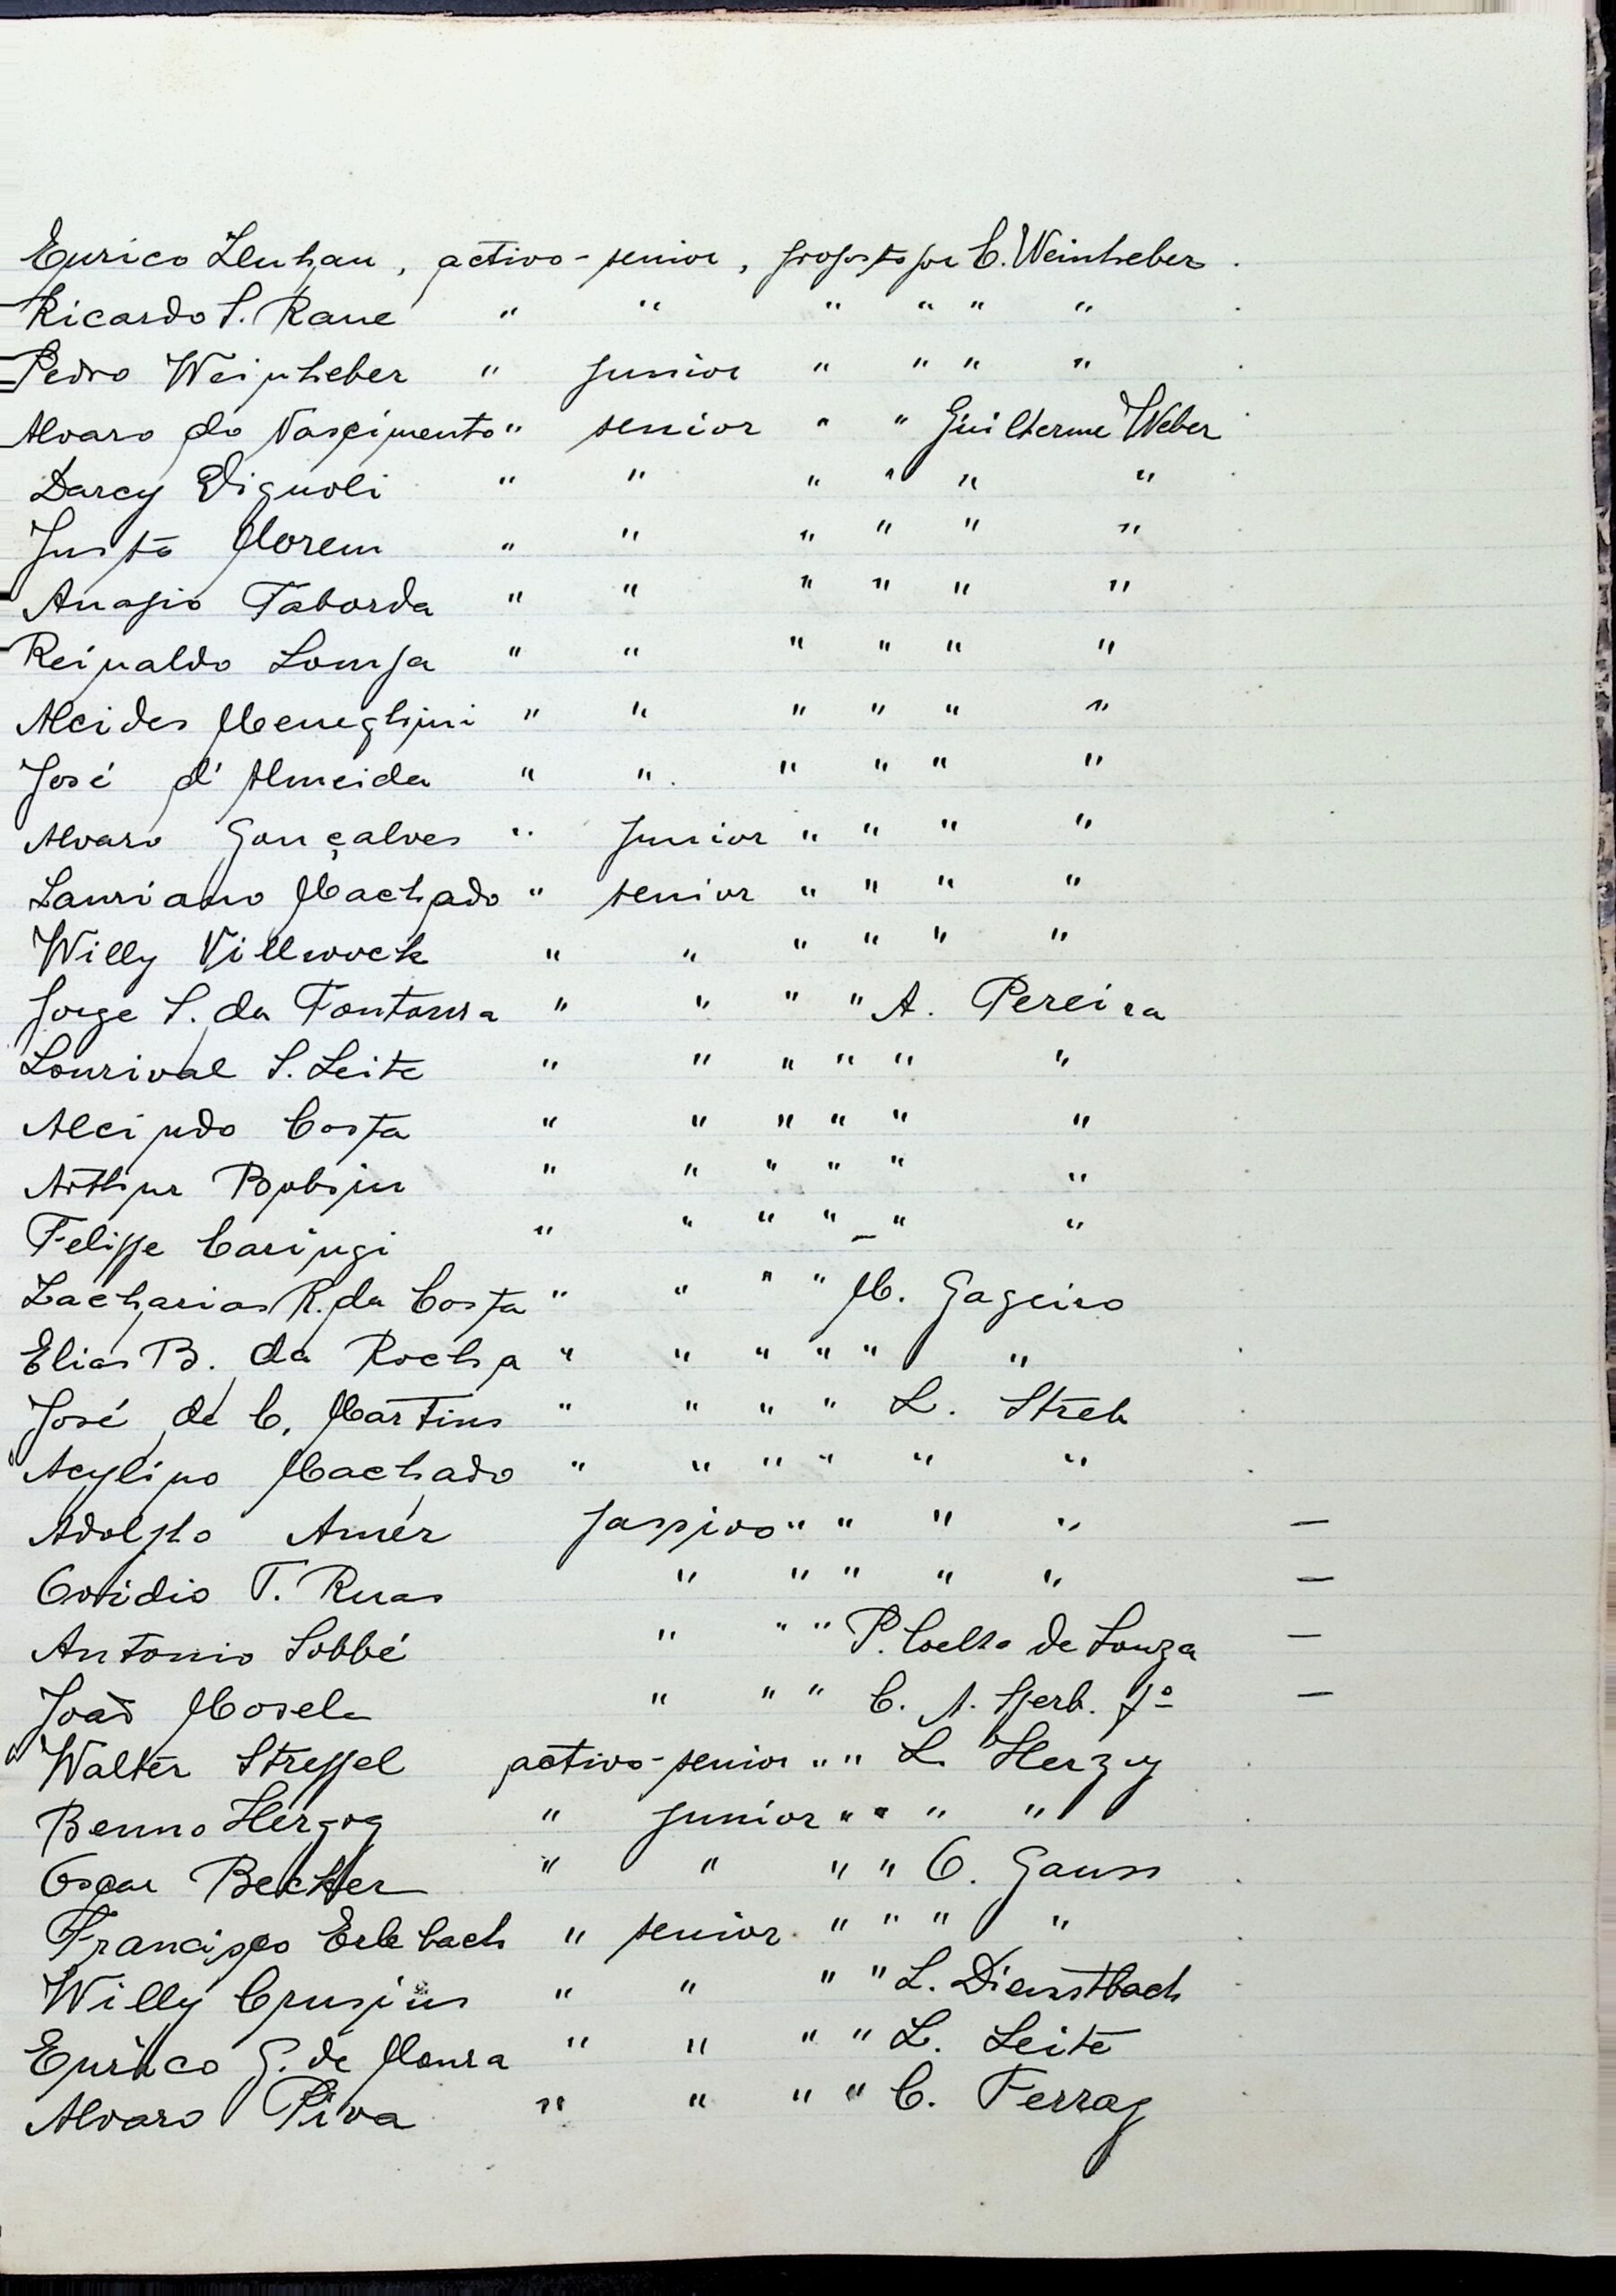 Eurico Lenhau, activo - senior, proposto por C. Weinheber.
Ricardo S. Rane " " " " " " .
Pedro Weinheber " junior " " " " .
Alvaro do Nascimento " senior " " Guilherme Weber
Darcy Vignoli " " " " " "
Justo Morem " " " " " "
Anapio Taborda " " " " " "
Reinaldo Lompa " " " " " "
Alcides Meneghini " " " " " "
José d'Almeida " " " " " "
Alvaro Gonçalves " junior " " " "
Lauriano Machado " senior " " " "
Willy Villwock " " " " " "
Jorge S. da Fontoura " " " " A. Pereira
Lourival S. Leite " " " " " "
Alcindo Costa " " " " " "
Arthur " " " " " "
Felippe Caringi " " " " " "
Zacharias R. da Costa " " " " M. Gageiro
Elias B. da Rocha " " " " " " .
José de C. Martins " " " " L. Streb .
Acylino Machado " " " " " " .
Adolpho Amér passivo " " " " —
Ovidio T. Ruas " " " " " —
Antonio Sobbé " " " P. Coelho de Souza —
João Mosele " " " C. A. Sperb. fº —
Walter Streppel activo - senior " " L. Herzog
Benno Herzog " junior " " " " .
Oscar Becker " " " " O. Gauss .
Francisco Erlebach " senior " " " "
Willy Crusius " " " " L. Dienstbach
Eurico G. de Moura " " " " L. Leite
Alvaro Piva " " " " C. Ferraz